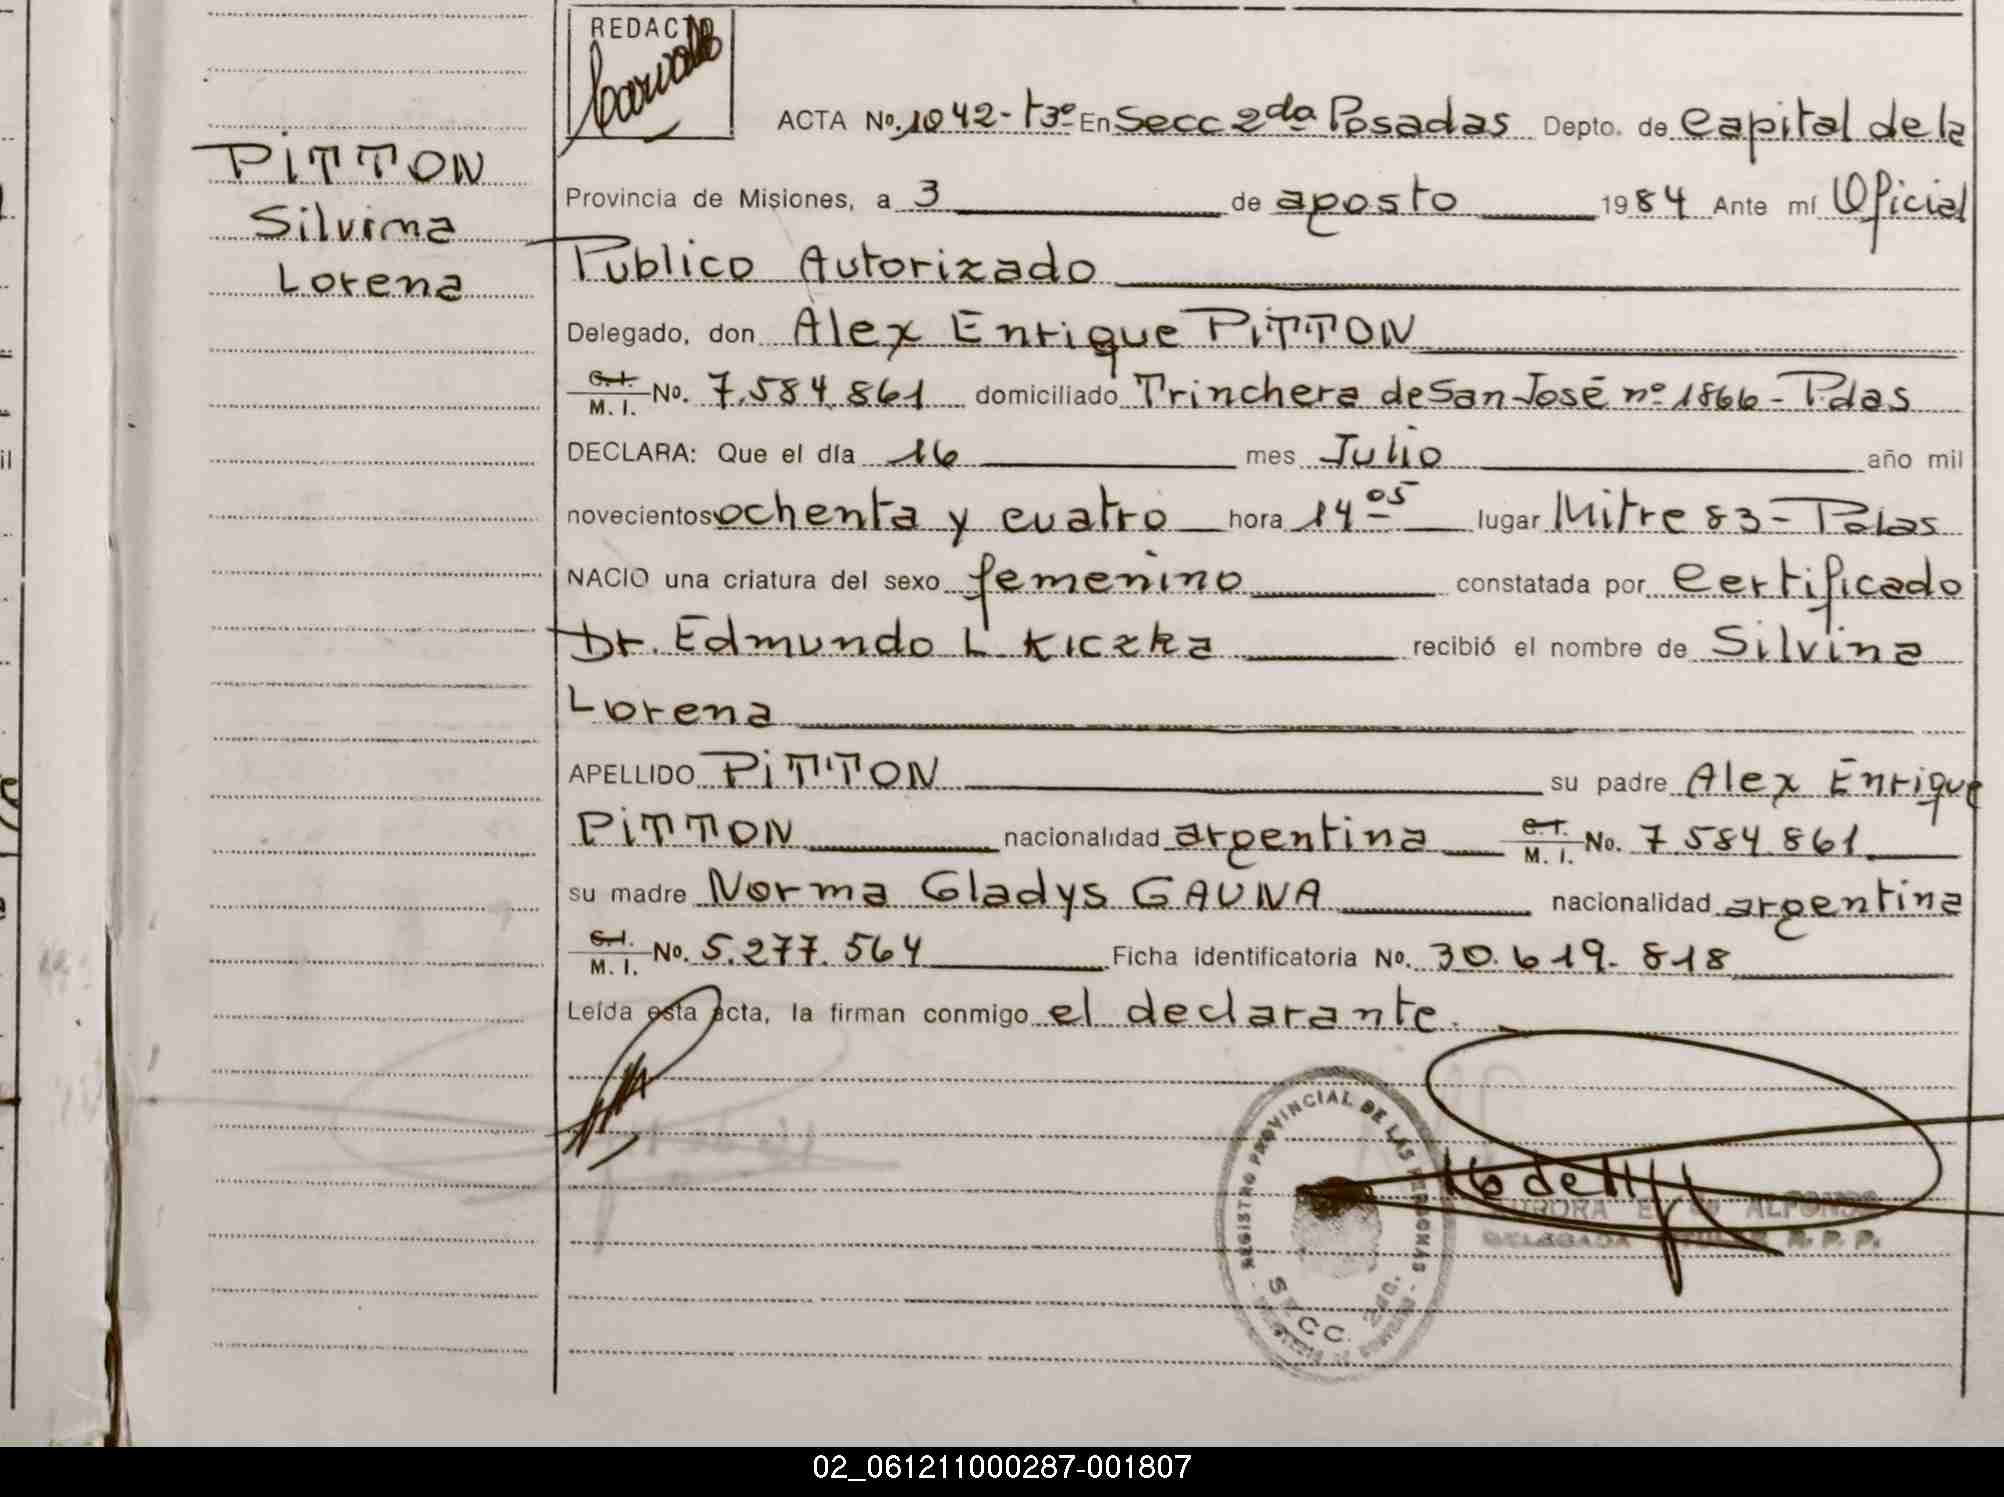 REDACTO
PITTON
Silvina
Lorena
ACTA No. 1042-tº3º En Secc 2da Posadas Depto. de Capital de la
Provincia de Misiones, a 3 de agosto 1984 Ante mí Oficial
Publico Autorizado
Delegado, don Alex Enrique PITTON
C.I. M. I. No. 7.584.861 domiciliado Trinchera de San José nº 1866 - Pdas
DECLARA: Que el día 16 mes Julio año mil
novecientos ochenta y cuatro hora 14 05 lugar Mitre 83 - Pdas
NACIO una criatura del sexo femenino constatada por Certificado
Dr. Edmundo L Kiczka recibió el nombre de Silvina
Lorena
APELLIDO PITTON su padre Alex Enrique
PITTON nacionalidad argentina C.I. M. I. No. 7 584 861
su madre Norma Gladys GAUNA nacionalidad argentina
C.I. M. I. No. 5.277.564 Ficha identificatoria No. 30.619.818
Leída esta acta, la firman conmigo el declarante.
REGISTRO PROVINCIAL DE LAS PERSONAS
SECC. 2da.
ALFONSO
DELEGADA R. P. P.
02_061211000287-001807